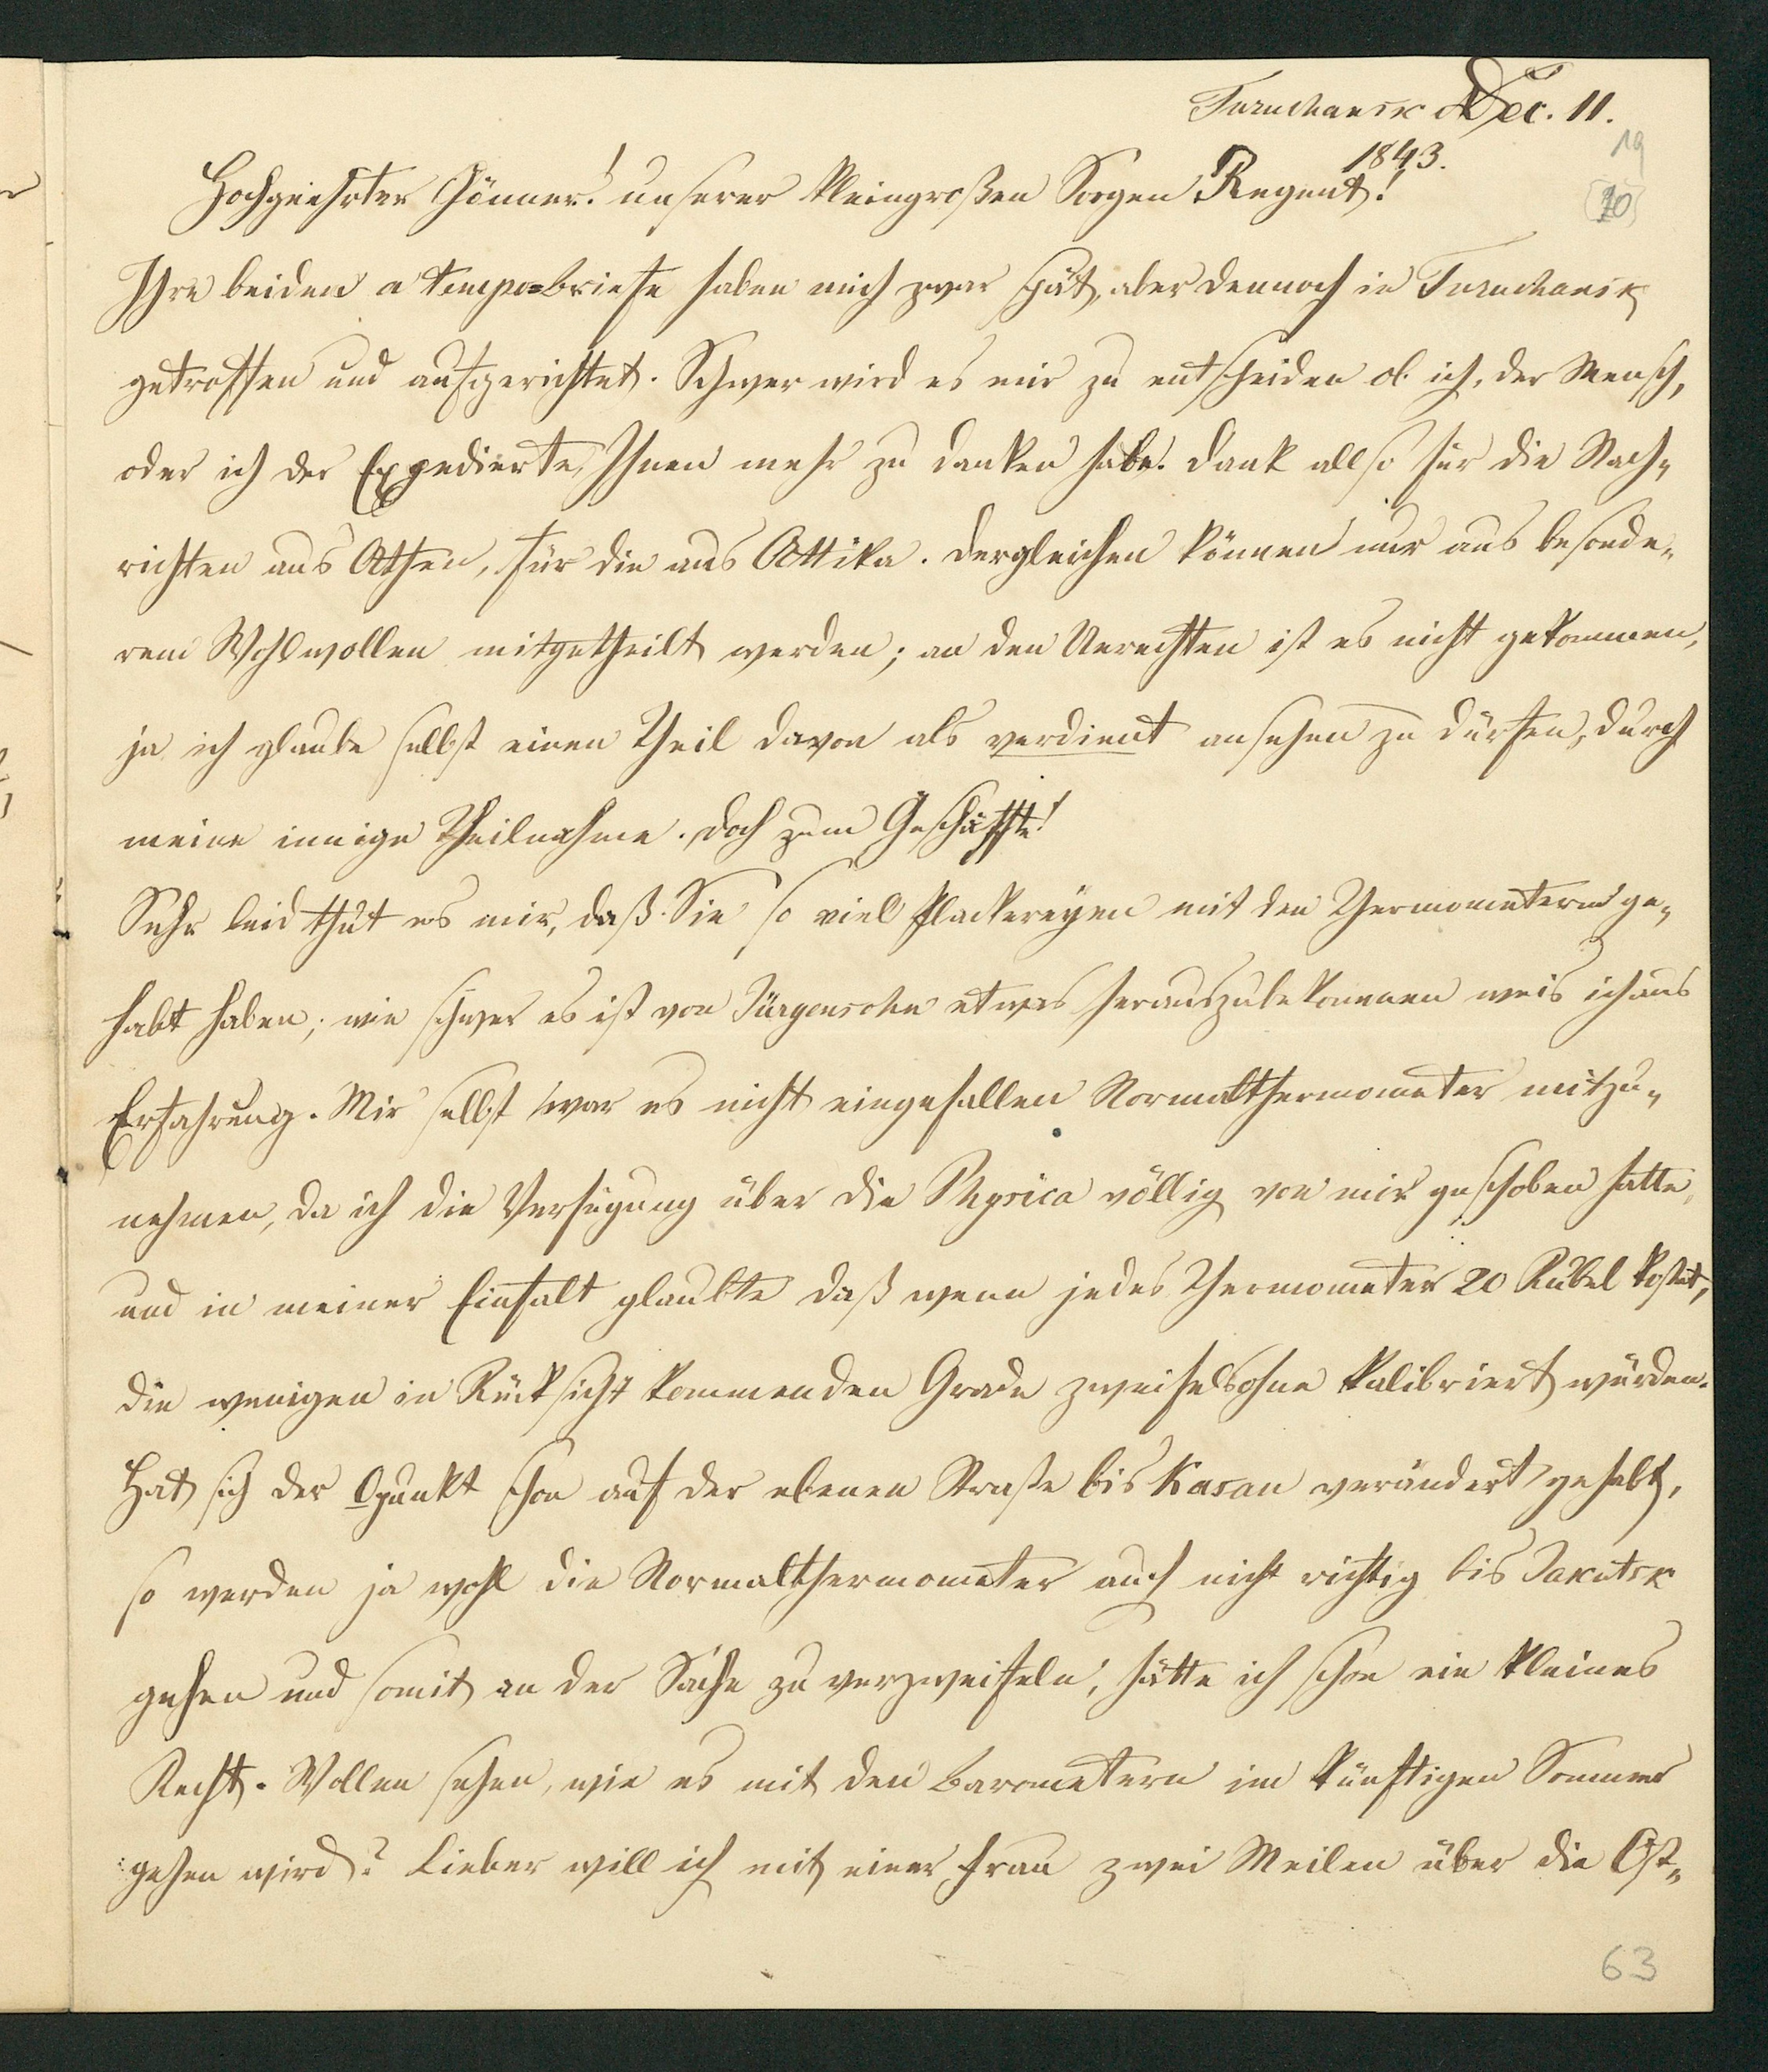 Turuchansk d Dec. 11.
1843.
19
20
Hochgeehrter Gönner! unserer kleingroßen Sorgen Regent!
Ihre beiden a tempo=briefe haben mich zwar spät, aber dennoch in Turuchansk
getroffen und aufgerichtet. Schwer wird es mir zu entscheiden ob ich, der Mensch,
oder ich der Expedierte, Ihnen mehr zu danken habe. Dank allso für die Nach=
richten aus Athen, für die aus Attika. Dergleichen können nur aus besonde=
rem Wohlwollen mitgetheilt werden; an den Unrechten ist es nicht gekommen,
ja ich glaube selbst einen Theil davon als verdient ansehen zu dürfen, durch
meine innige Theilnahme. Doch zum Geschäffte!
Sehr leid thut es mir, daß Sie so viel Plackereyen mit den Thermometern ge=
habt haben; wie schwer es ist von Jürgensohn etwas herauszubekommen weis ich aus
Erfahrung. Mir selbst war es nicht eingefallen Normalthermometer mitzu=
nehmen, da ich die Verfügung über die Physica völlig von mir geschoben hatte,
und in meiner Einfalt glaubte daß wenn jedes Thermometer 20 Rubel kostet,
die wenigen in Rücksicht kommenden Grade zweifelsohne kalibriert würden.
Hat sich der 0punkt schon auf der ebenen Straße bis Kasan verändert gehabt,
so werden ja wohl die Normalthermometer auch nicht richtig bis Jakutsk
gehen und somit an der Sache zu verzweifeln, hätte ich schon ein kleines
Recht. Wollen sehen, wie es mit den Barometern im künftigen Sommer
gehen wird? Lieber will ich mit einer Frau zwei Meilen über die Ost=
63